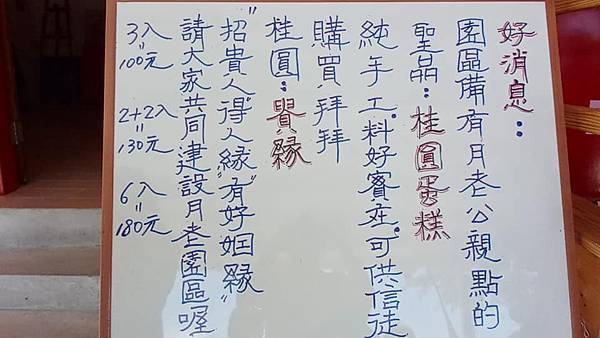 好消息：
園區備有月老公親點的
聖品：桂圓蛋糕
純手工.料好實在.可供信徒
購買拜拜
桂圓：貴緣
"招貴人"得"人緣"有"好姻緣"
請大家共同建設月老園區喔
3入=100元
2+2入=130元
6入=180元